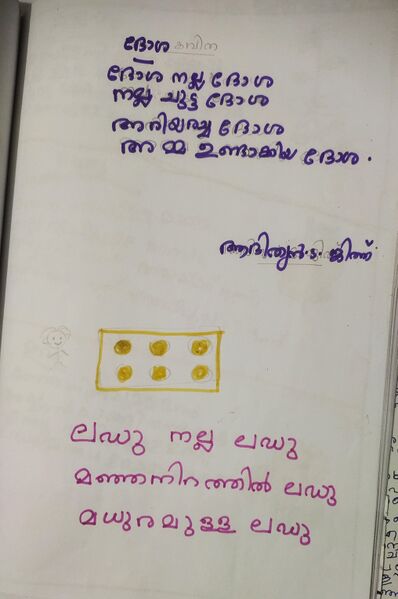 ദോശ കവിത
ദോശ നല്ല ദോശ
നല്ല ചുട്ട ദോശ
അരിയരച്ച ദോശ
അമ്മ ഉണ്ടാക്കിയ ദോശ.
ലഡു നല്ല ലഡു
മഞ്ഞനിറത്തിൽ ലഡു
മധുരമുള്ള ലഡു